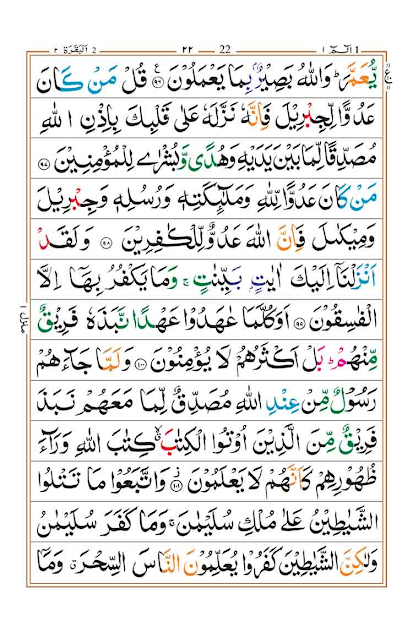 البقرة ٢ 2 ٢٢ — 22 الٓمّٓ ١ 1
يُّعَمَّرَ ؕ وَاللّٰهُ بَصِيْرٌۢ بِمَا يَعْمَلُوْنَ ﴿۹۶﴾ قُلْ مَنْ كَانَ
عَدُوًّا لِّجِبْرِيْلَ فَاِنَّهٗ نَزَّلَهٗ عَلٰى قَلْبِكَ بِاِذْنِ اللّٰهِ
مُصَدِّقًا لِّمَا بَيْنَ يَدَيْهِ وَهُدًى وَّبُشْرٰى لِلْمُؤْمِنِيْنَ ﴿۹۷﴾
مَنْ كَانَ عَدُوًّا لِّلّٰهِ وَمَلٰٓئِكَتِهٖ وَرُسُلِهٖ وَجِبْرِيْلَ
وَمِيْكٰىلَ فَاِنَّ اللّٰهَ عَدُوٌّ لِّلْكٰفِرِيْنَ ﴿۹۸﴾ وَلَقَدْ
اَنْزَلْنَاۤ اِلَيْكَ اٰيٰتٍۭ بَيِّنٰتٍ ۚ وَمَا يَكْفُرُ بِهَاۤ اِلَّا
الْفٰسِقُوْنَ ﴿۹۹﴾ اَوَكُلَّمَا عٰهَدُوْا عَهْدًا نَّبَذَهٗ فَرِيْقٌ
مِّنْهُمْ ؕ بَلْ اَكْثَرُهُمْ لَا يُؤْمِنُوْنَ ﴿۱۰۰﴾ وَلَمَّا جَآءَهُمْ
رَسُوْلٌ مِّنْ عِنْدِ اللّٰهِ مُصَدِّقٌ لِّمَا مَعَهُمْ نَبَذَ
فَرِيْقٌ مِّنَ الَّذِيْنَ اُوْتُوا الْكِتٰبَ ۙ كِتٰبَ اللّٰهِ وَرَآءَ
ظُهُوْرِهِمْ كَاَنَّهُمْ لَا يَعْلَمُوْنَ ﴿۱۰۱﴾ وَاتَّبَعُوْا مَا تَتْلُوا
الشَّيٰطِيْنُ عَلٰى مُلْكِ سُلَيْمٰنَ ۚ وَمَا كَفَرَ سُلَيْمٰنُ
وَلٰكِنَّ الشَّيٰطِيْنَ كَفَرُوْا يُعَلِّمُوْنَ النَّاسَ السِّحْرَ ۗ وَمَاۤ
منزل ١